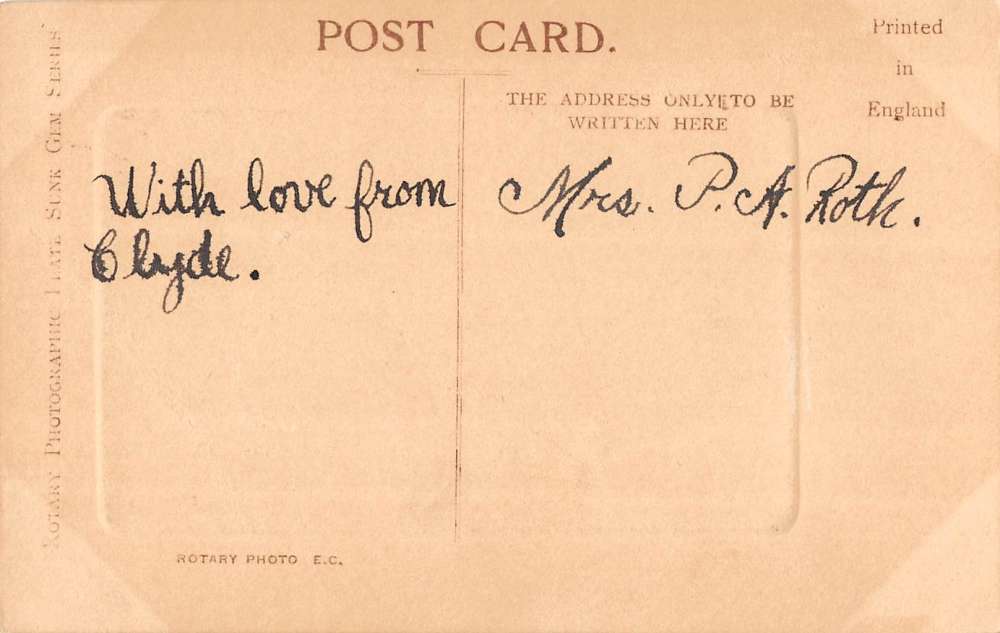 POST CARD.
Printed
in
England
THE ADDRESS ONLY TO BE
WRITTEN HERE
With love from
Clyde.
Mrs. P. A. Roth.
ROTARY PHOTOGRAPHIC PLATE SUNK GEM SERIES
ROTARY PHOTO E.C.